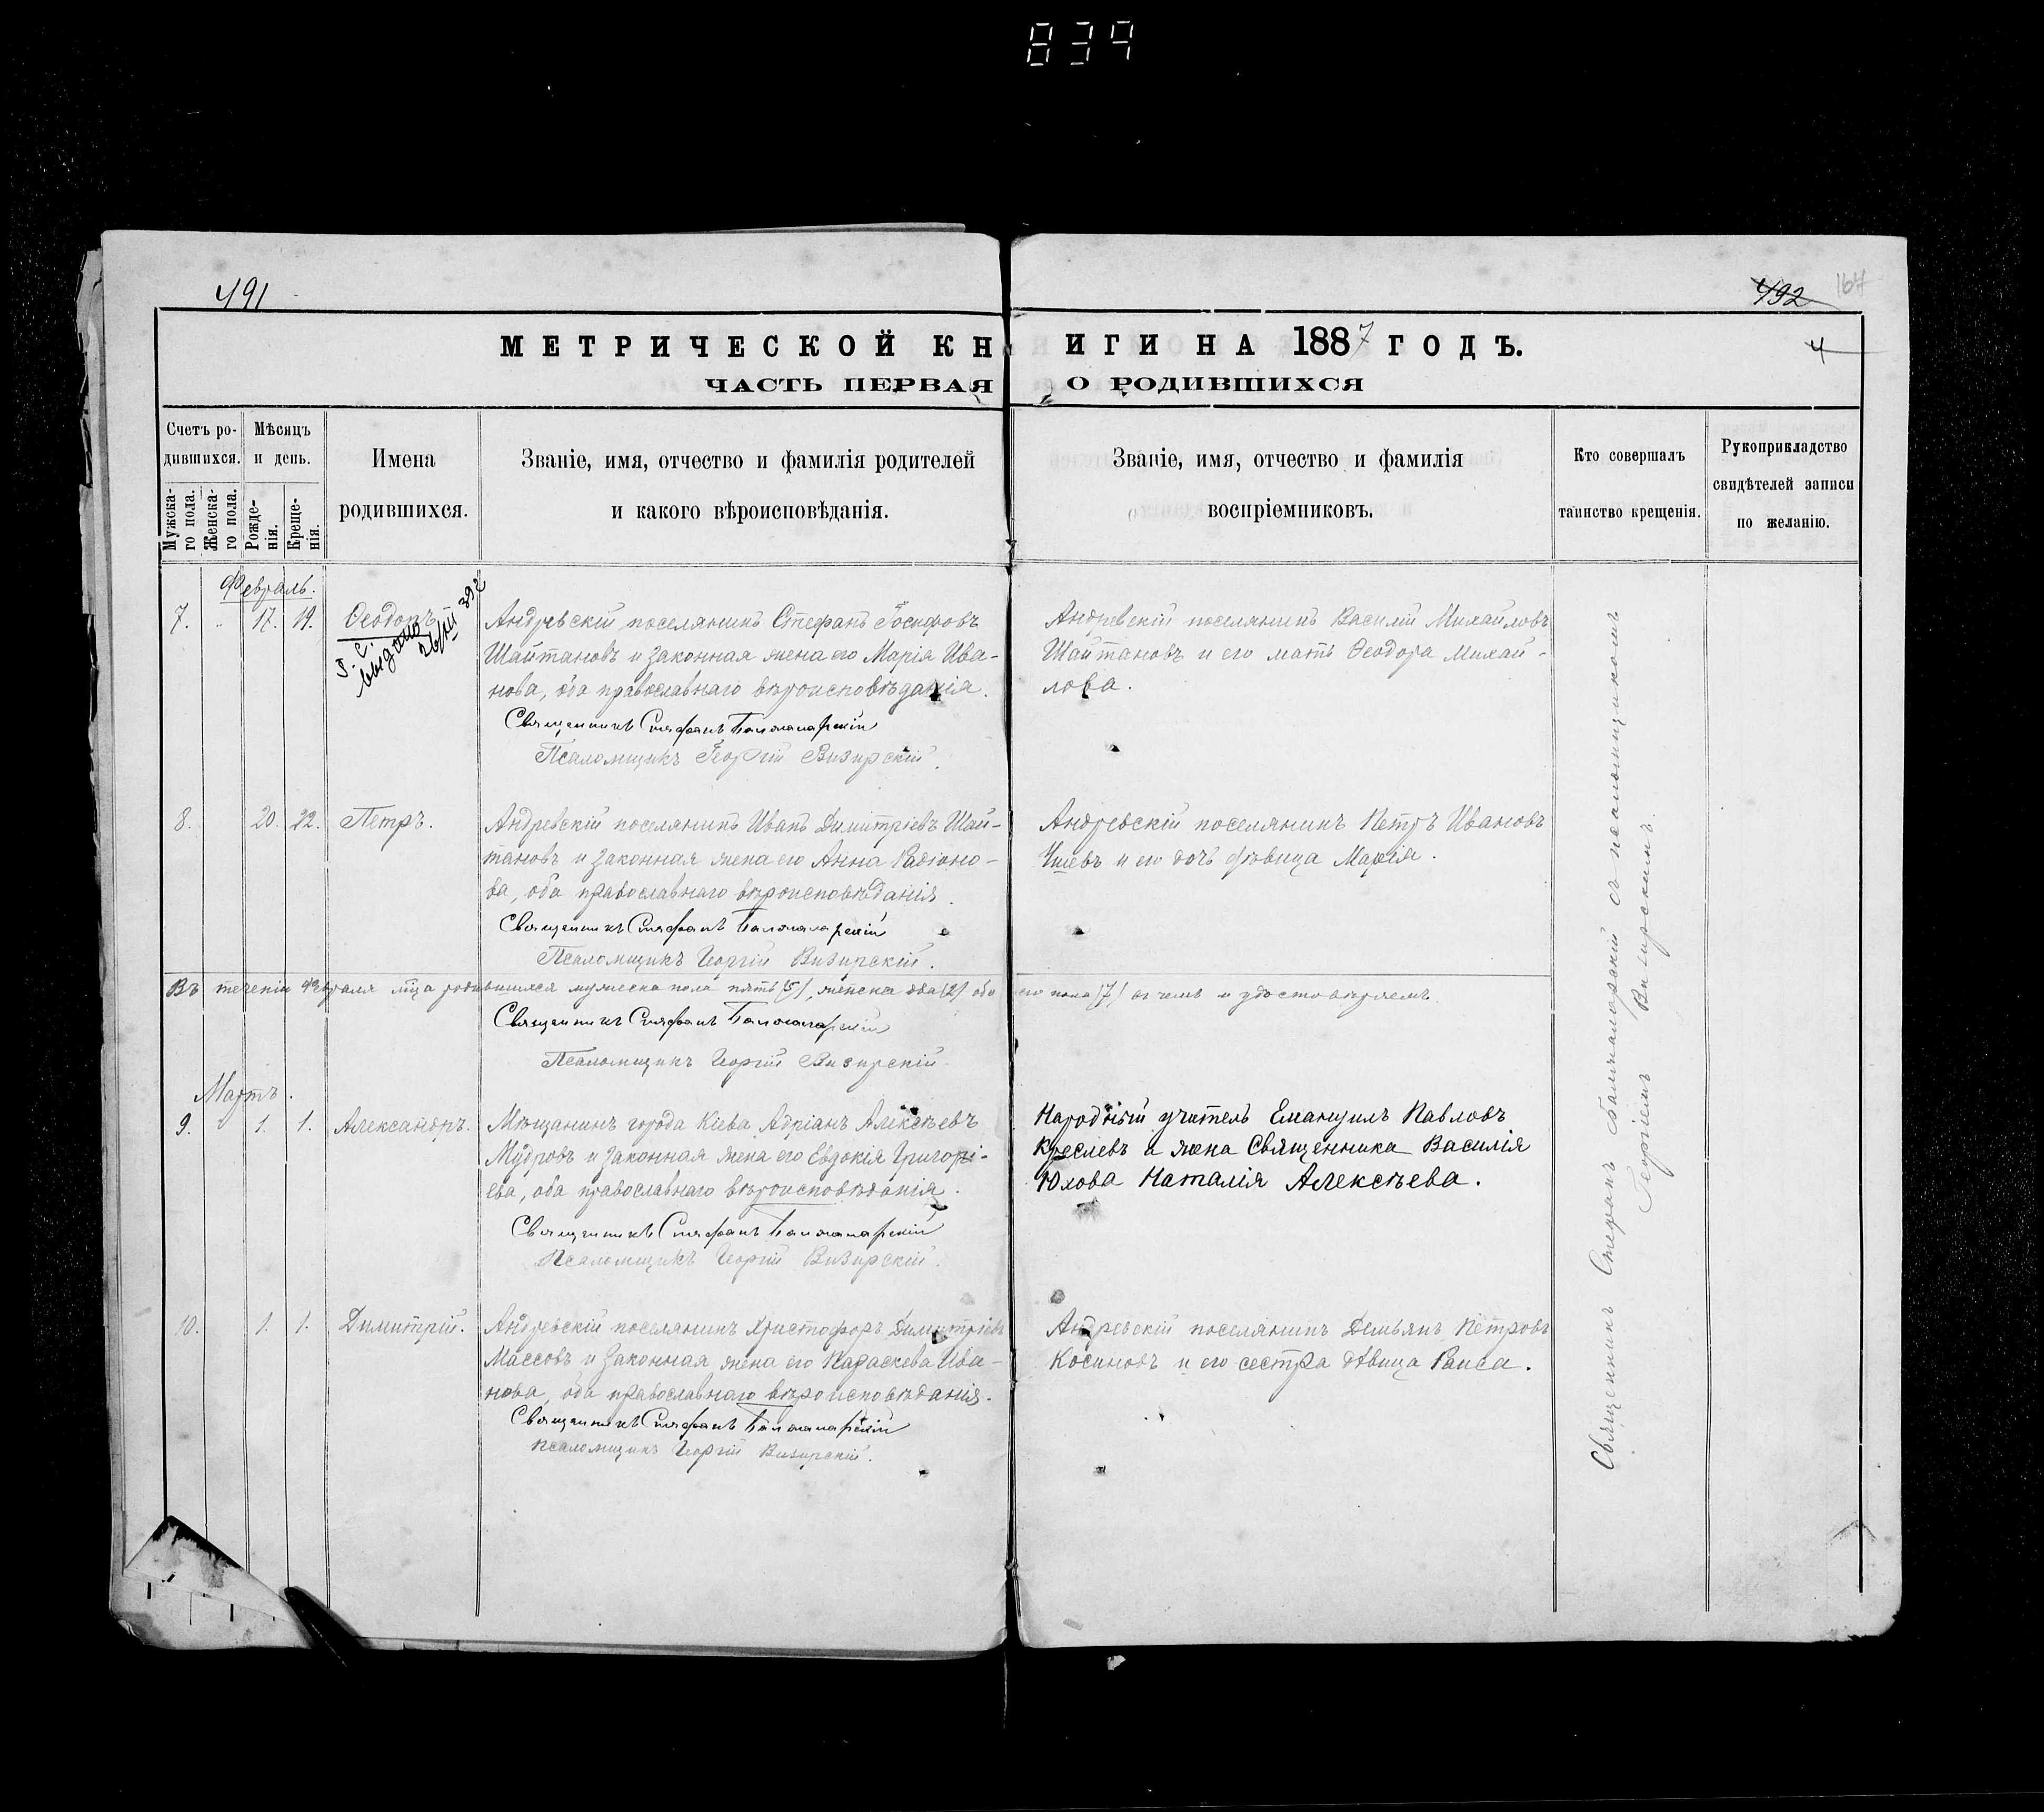 839
491
492
164
4
МЕТРИЧЕСКОЙ КНИГИ НА 1887 ГОДЪ.
ЧАСТЬ ПЕРВАЯ О РОДИВШИХСЯ
Счетъ ро-
дившихся.
Мужска-
го пола.
Женска-
го пола.
Мѣсяцъ
и день.
Рожде-
нія.
Креще-
нія.
Имена
родившихся.
Званіе, имя, отчество и фамилія родителей
и какого вѣроисповѣданія.
Званіе, имя, отчество и фамилія
воспріемниковъ.
Кто совершалъ
таинство крещенія.
Рукоприкладство
свидѣтелей записи
по желанію.
Февраль.
7. " 17. 19. Ѳеодоръ
выдано
392
Андревскій поселянинъ Стефанъ Іосифовъ
Шайтановъ и законная жена его Марія Ива-
нова, оба православнаго вѣроисповѣданія.
Священникъ Стефанъ
Псаломщикъ Георгій Визирскій.
Андревскій поселянинъ Василій Михайловъ
Шайтановъ и его мать Ѳеодора Михай-
лова.
8. 20. 22. Петръ.
Андревскій поселянинъ Иванъ Димитріевъ Шай-
тановъ и законная жена его Анна Радіоно-
ва, оба православнаго вѣроисповѣданія.
Священникъ Стефанъ
Псаломщикъ Георгій Визирскій.
Андревскій поселянинъ Петръ Ивановъ
и его дочь дѣвица Марія.
Въ теченіи Февраля мца родившихся мужеска пола пять (5), женска два (2) обо его пола (7) въ чемъ и удостовѣряемъ.
Священникъ Стефанъ
Псаломщикъ Георгій Визирскій.
Мартъ.
9. " 1. 1. Александръ.
Мѣщанинъ города Кіева Адріанъ Алексѣевъ
Мудровъ и законная жена его Евдокія Григорі-
ева, оба православнаго вѣроисповѣданія.
Священникъ Стефанъ
Псаломщикъ Георгій Визирскій.
Народный учитель Емануилъ Павловъ
Креслевъ и жена Священника Василія
Юхова Наталія Алексѣева.
10. 1. 1. Димитрій.
Андревскій поселянинъ Христофоръ Димитріевъ
Массовъ и законная жена его Параскева Ива-
нова, оба православнаго вѣроисповѣданія.
Священникъ Стефанъ
Псаломщикъ Георгій Визирскій.
Андревскій поселянинъ Демьянъ Петровъ
Косиновъ и его сестра дѣвица Раиса.
Священникъ Стефанъ съ псаломщикомъ
Георгіемъ Визирскимъ.